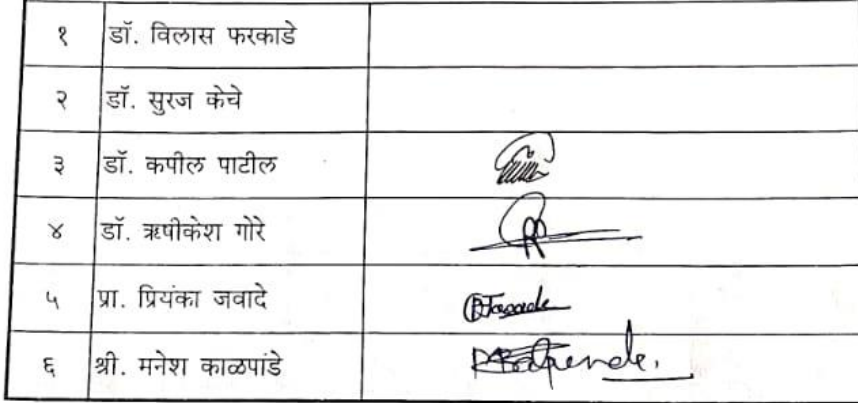 १ डॉ. विलास फरकाडे
२ डॉ. सुरज केचे
३ डॉ. कपील पाटील
४ डॉ. ऋषीकेश गोरे
५ प्रा. प्रियंका जवादे
६ श्री. मनेश काळपांडे